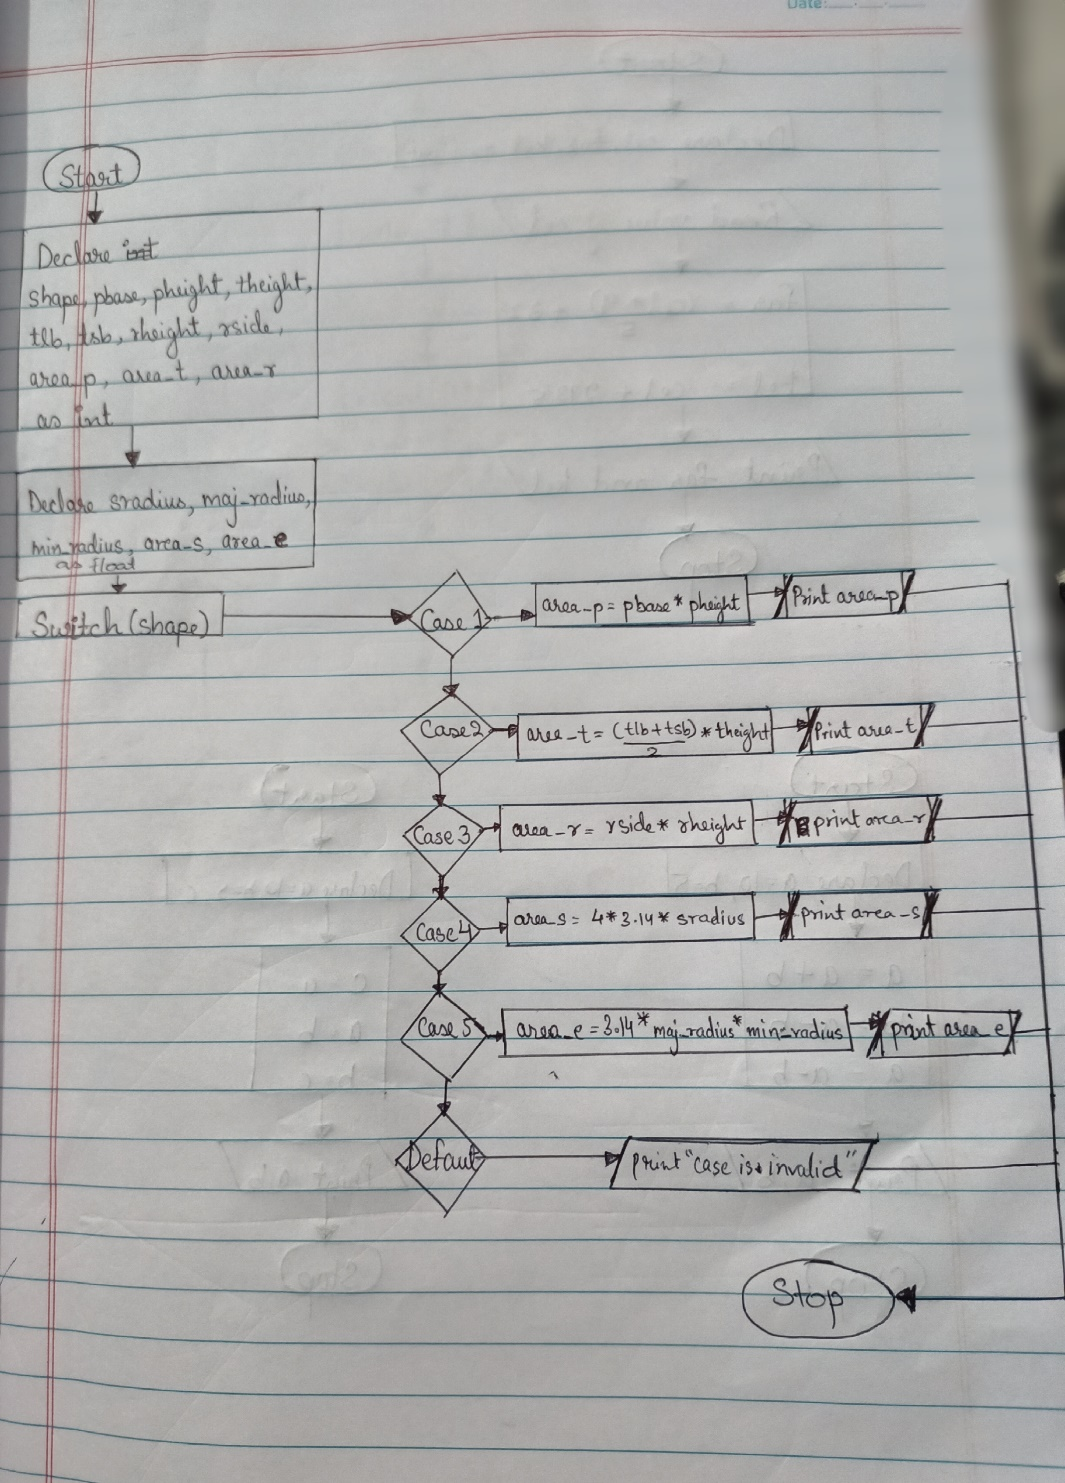 Date:
Start
Declare int
shape, pbase, pheight, theight,
tlb, tsb, rheight, rside,
area_p, area_t, area_r
as int
Declare sradius, maj_radius,
min_radius, area_s, area_e
as float
Switch (shape)
Case 1
area_p = pbase * pheight
Print area_p
Case 2
area_t = (tlb+tsb) * theight
2
Print area_t
Case 3
area_r = rside * rheight
print area_r
Case 4
area_s = 4*3.14* sradius
print area_s
Case 5
area_e = 3.14 * maj_radius * min_radius
print area_e
Defaut
print "case is invalid"
Stop